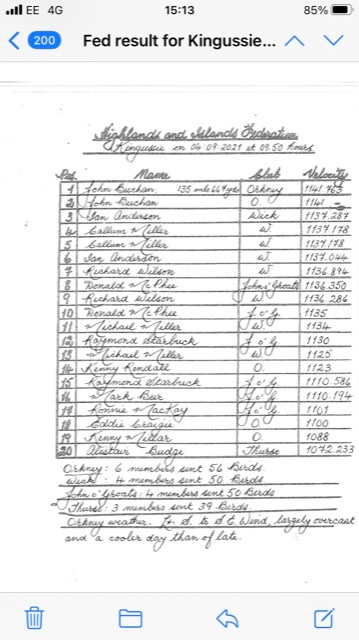 EE 4G 15:13 85%
200 Fed result for Kingussie...
Highlands and Islands Federation
Kingussie on 04-09-2021 at 09.50 hours
Pos. Name Club Velocity
1 John Buchan 135 mls 667yds Orkney 1141.763
2 John Buchan O. 1141
3 Ian Anderson Wick 1137.287
4 Callum Miller W 1137.178
5 Callum Miller W 1137.178
6 Ian Anderson W 1137.044
7 Richard Wilson W 1136.894
8 Donald McPhee John o'Groats 1136.350
9 Richard Wilson W 1136.286
10 Donald McPhee J o' G. 1135
11 Michael Miller W. 1134
12 Raymond Starbuck J o' G. 1130
13 Michael Miller W 1125
14 Kenny Kendall O. 1123
15 Raymond Starbuck J o' G. 1110.586
16 Mark Beer J o' G. 1110.194
17 Ronnie MacKay J o' G. 1101
18 Eddie Craigie O 1100
19 Kenny Millar O. 1088
20 Alistair Budge Thurso 1072.233
Orkney: 6 members sent 56 Birds.
Wick: 4 members sent 50 Birds.
John o'Groats: 4 members sent 50 Birds
Thurso: 3 members sent 39 Birds.
Orkney weather. Lt. S. to S.E. Wind, largely overcast
and a cooler day than of late.